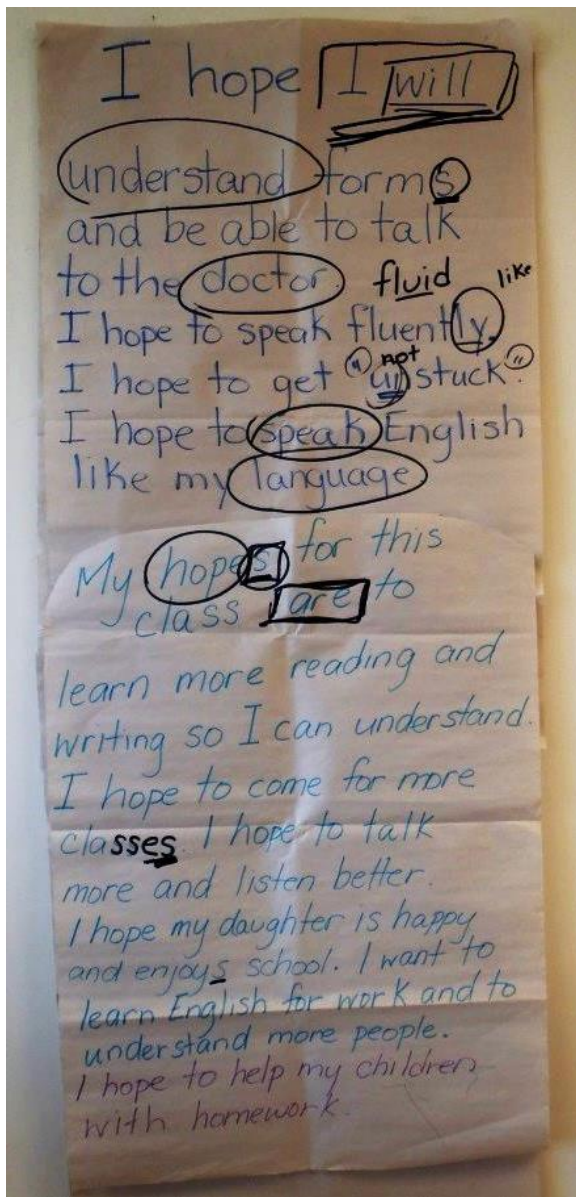 I hope I will
understand forms
and be able to talk
to the doctor. fluid like
I hope to speak fluently.
not
I hope to get "unstuck".
I hope to speak English
like my language
My hopes for this
class are to
learn more reading and
writing so I can understand.
I hope to come for more
classes. I hope to talk
more and listen better.
I hope my daughter is happy
and enjoys school. I want to
learn English for work and to
understand more people.
I hope to help my children
with homework.